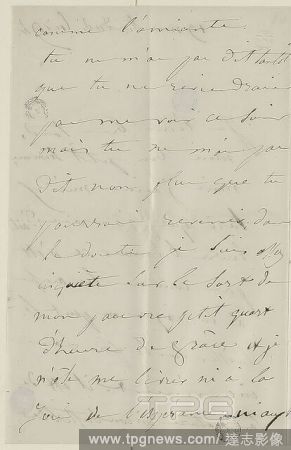 comme l'amiante
tu ne m'as pas dit tantôt
que tu ne reviendrais
pas me voir ce soir
mais tu ne m'as pas
dit non plus que tu
pourrais revenir dans
le doute je suis
inquiète sur le sort de
mon pauvre petit quart
d'heure de grâce et je
n'ose me livrer ni à la
joie de l'espérance ni aux
TPG
www.tpgnews.com/ 達志影像